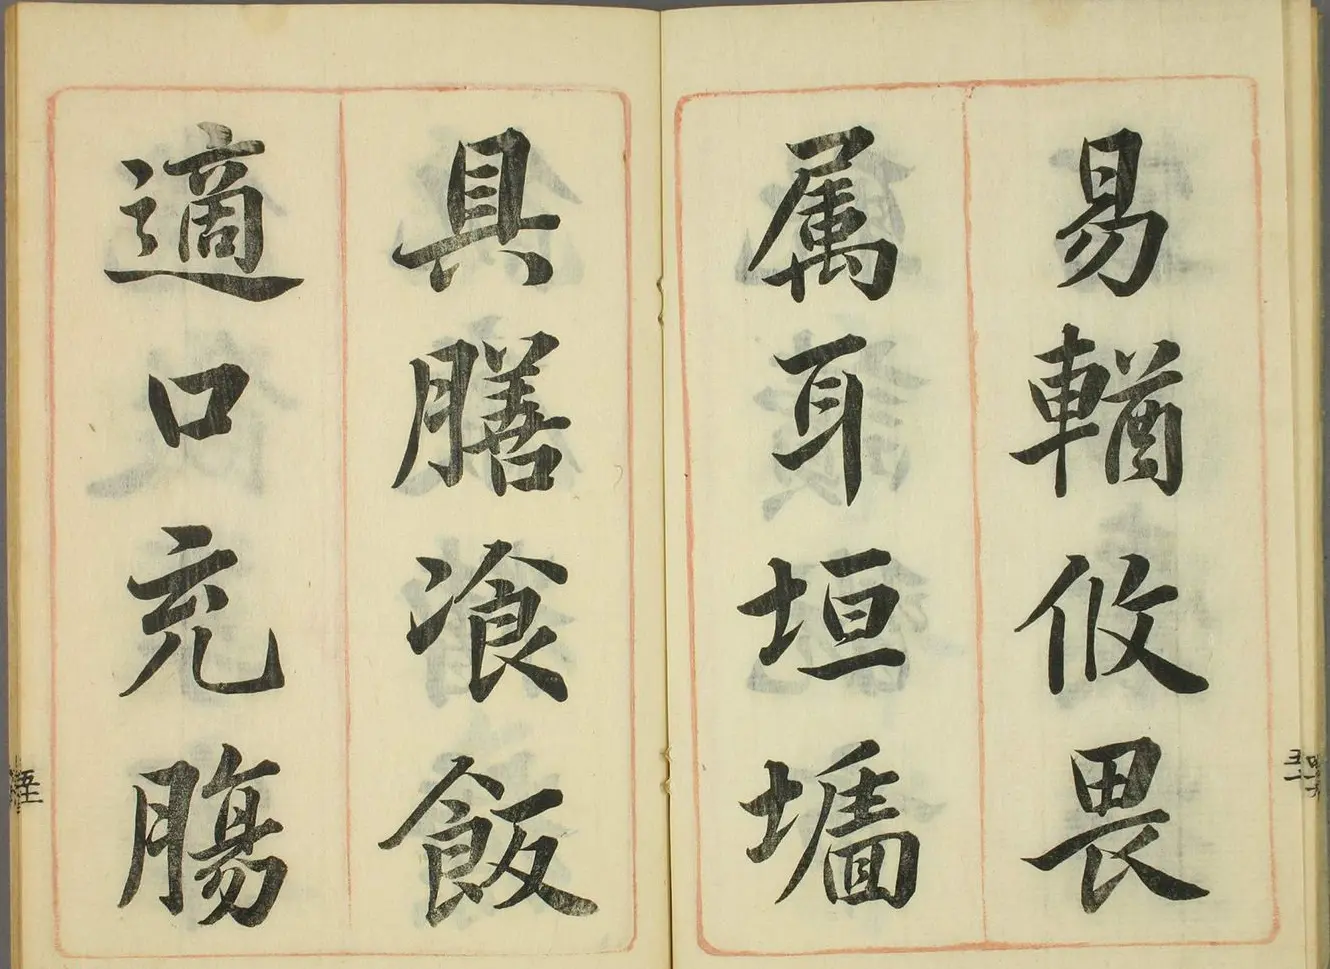 易輶攸畏
属耳垣墻
具膳飡飯
適口充膓